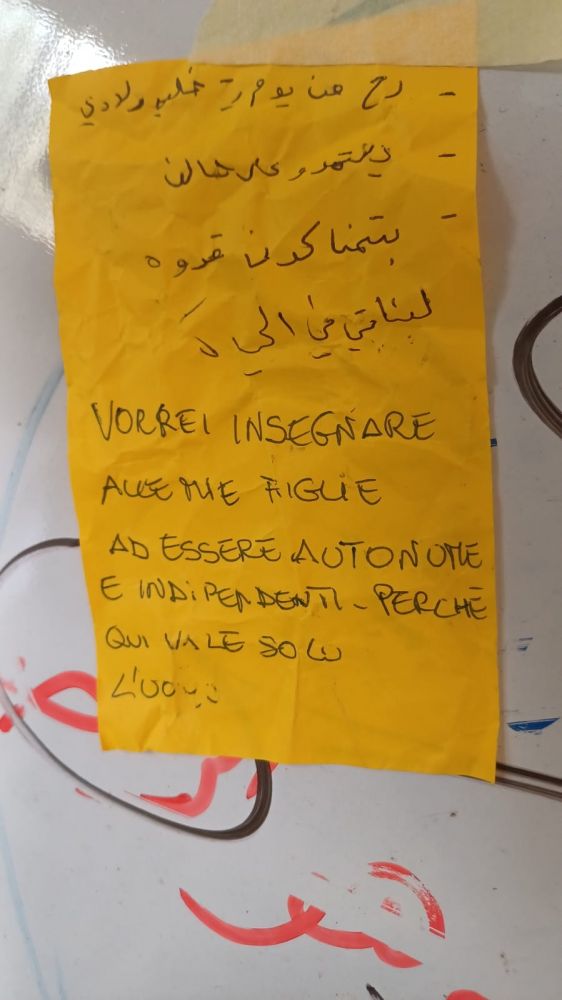 - رح من يوم رية خليه ولادي
- يعتمدو على حالن
- بتمنا كون قدوه
لبناتي في الحياة
VORREI INSEGNARE
ALLE MIE FIGLIE
AD ESSERE AUTONOME
E INDIPENDENTI - PERCHÉ
QUI VALE SOLO
L'UOMO